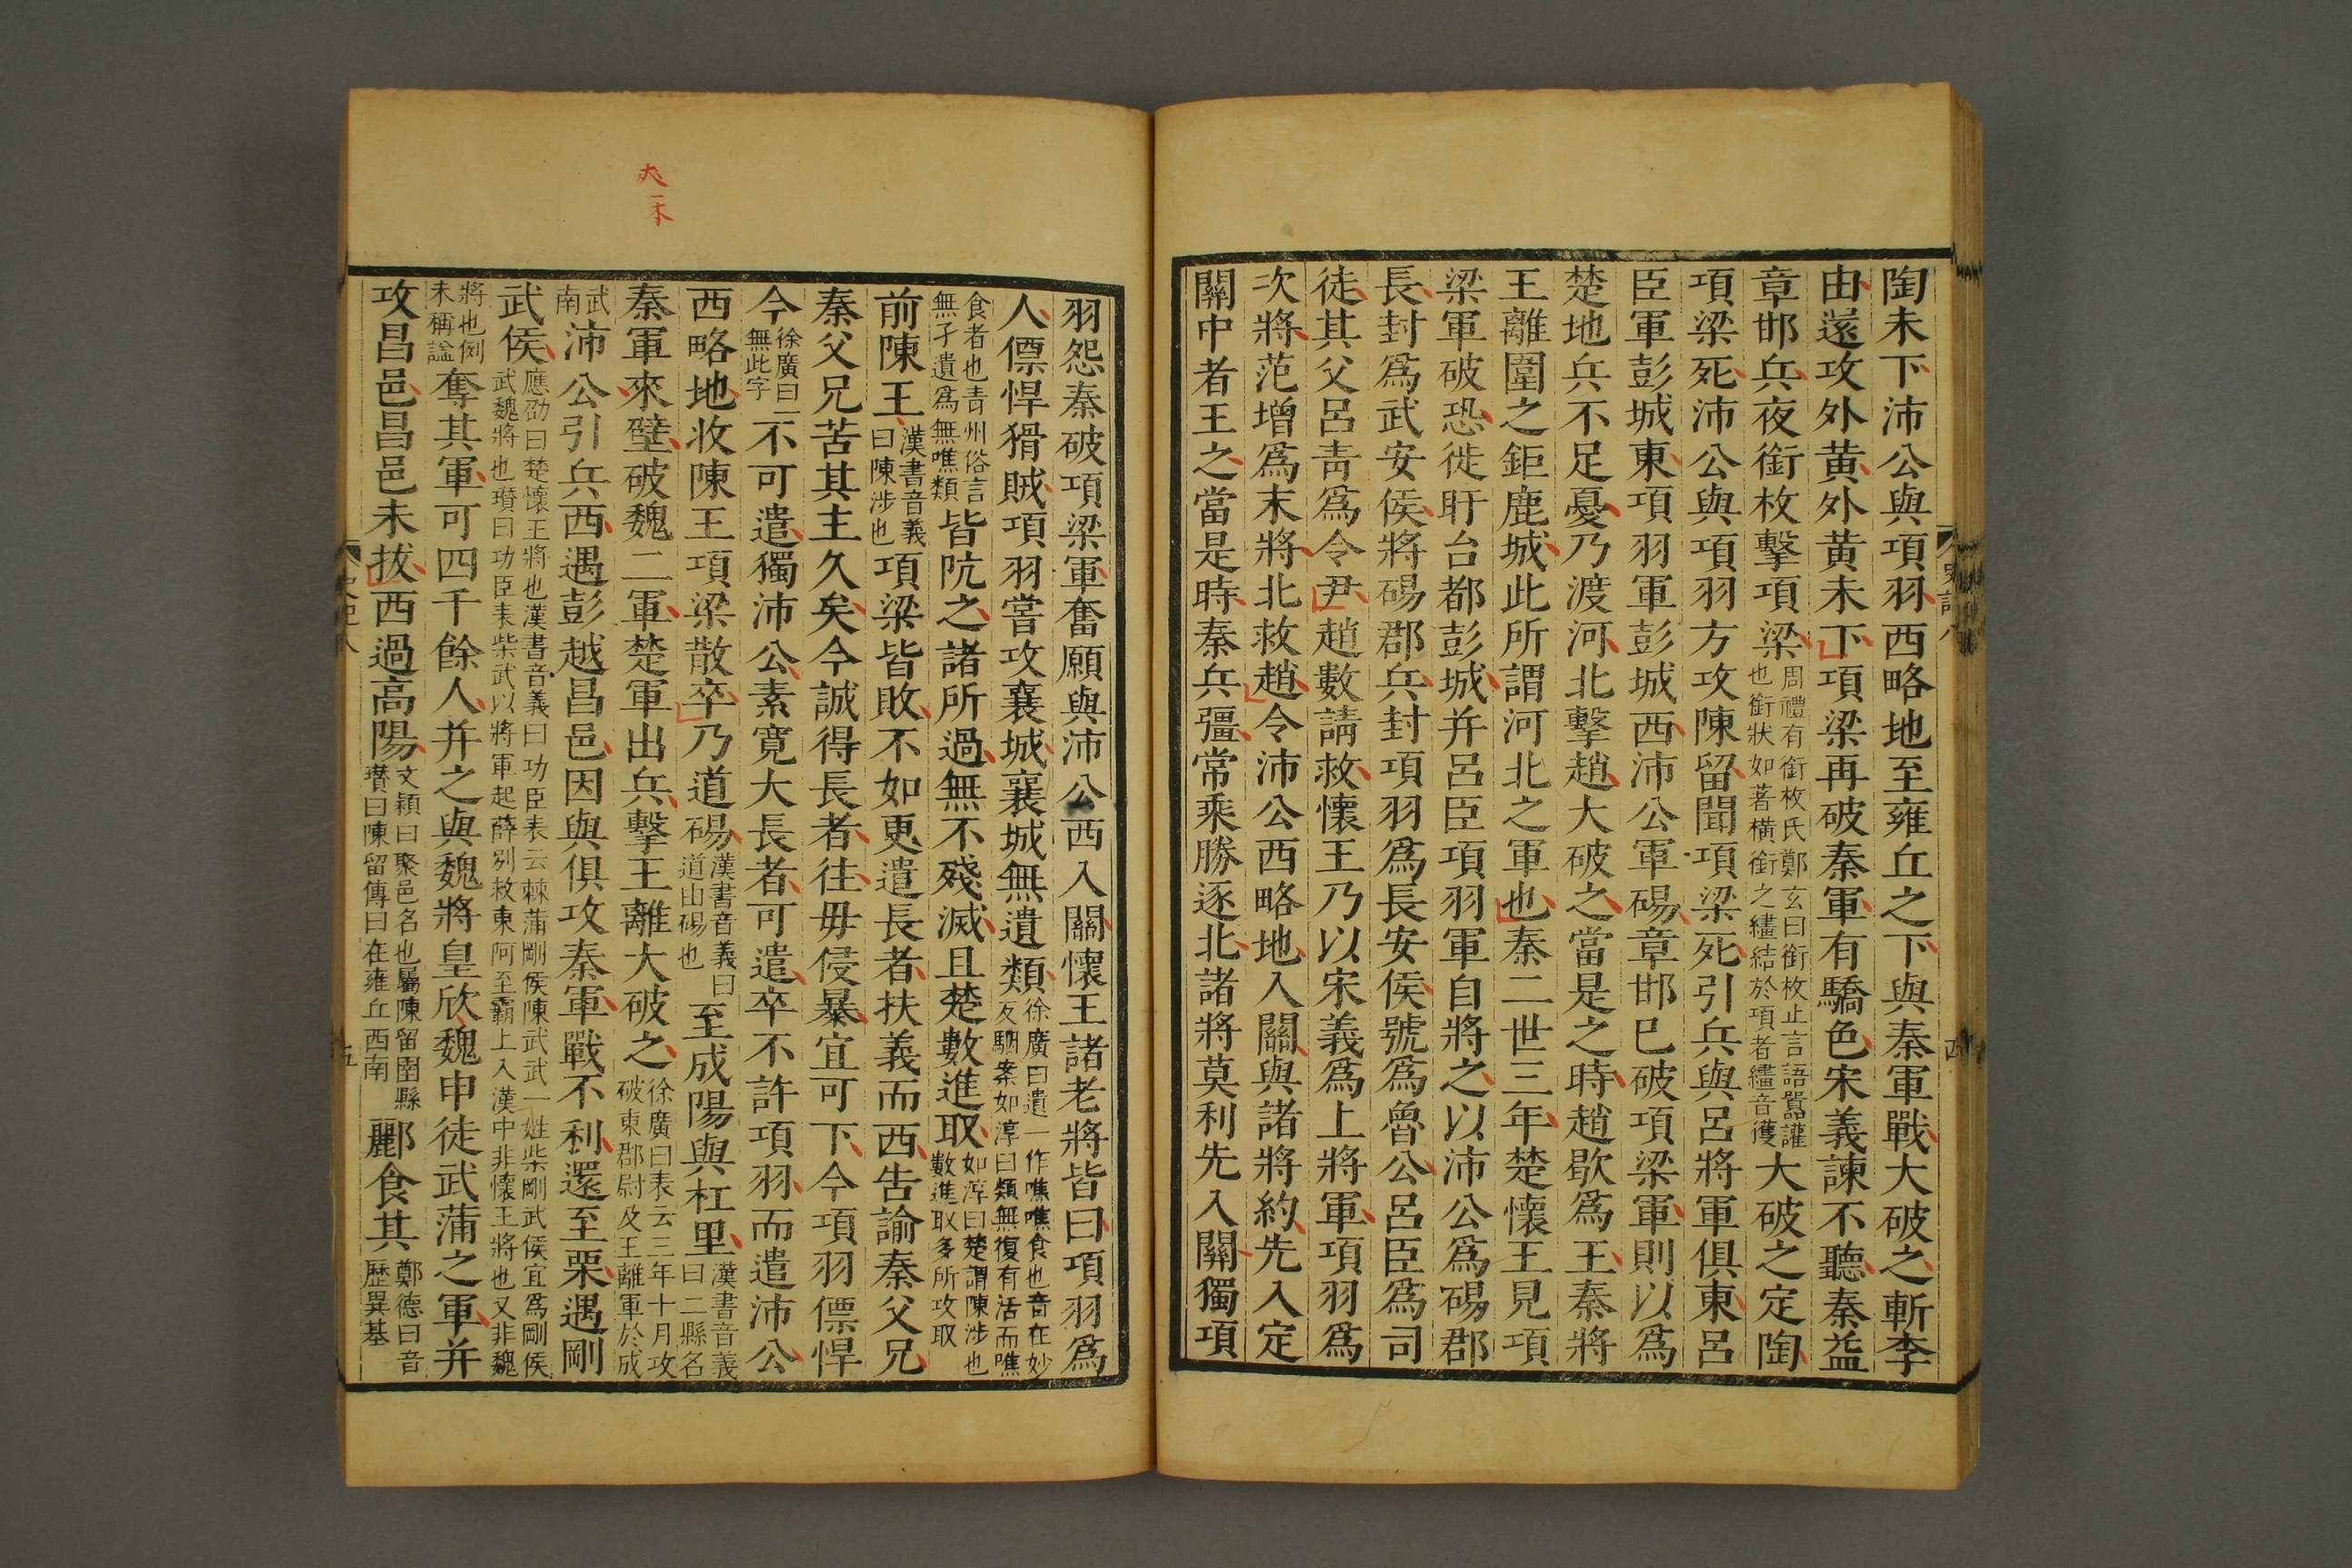 陶未下沛公與項羽西略地至雍丘之下與秦軍戰大破之斬李
由還攻外黄外黄未下項梁再破秦軍有驕色宋義諫不聽秦益
章邯兵夜銜枚擊項梁周禮有銜枚氏鄭玄曰銜枚止言語嚻讙也銜狀如著横銜之繣結於項者繣音獲大破之定陶
項梁死沛公與項羽方攻陳留聞項梁死引兵與呂將軍俱東呂
臣軍彭城東項羽軍彭城西沛公軍碭章邯巳破項梁軍則以爲
楚地兵不足憂乃渡河北擊趙大破之當是之時趙歇爲王秦將
王離圍之鉅鹿城此所謂河北之軍也秦二世三年楚懷王見項
梁軍破恐徙盱台都彭城并呂臣項羽軍自將之以沛公爲碭郡
長封爲武安侯將碭郡兵封項羽爲長安侯號爲魯公呂臣爲司
徒其父呂青爲令尹趙數請救懷王乃以宋義爲上將軍項羽爲
次將范增爲末將北救趙令沛公西略地入關與諸將約先入定
關中者王之當是時秦兵彊常乘勝逐北諸將莫利先入關獨項
史記八
四
羽怨秦破項梁軍奮願與沛公西入關懷王諸老將皆曰項羽爲
人僄悍猾賊項羽嘗攻襄城襄城無遺類徐廣曰遺一作噍噍食也音在妙反駰案如淳曰類無復有活而噍
食者也青州俗言無孑遺爲無噍類皆阬之諸所過無不殘滅且楚數進取如淳曰楚謂陳涉也數進取多所攻取
前陳王漢書音義曰陳涉也項梁皆敗不如更遣長者扶義而西告諭秦父兄
秦父兄苦其主久矣今誠得長者往毋侵暴宜可下今項羽僄悍
今徐廣曰一無此字不可遣獨沛公素寬大長者可遣卒不許項羽而遣沛公
西略地收陳王項梁散卒乃道碭漢書音義曰道由碭也至成陽與杠里漢書音義曰二縣名
秦軍來壁破魏二軍楚軍出兵擊王離大破之徐廣曰表云三年十月攻破東郡尉及王離軍於成
武南沛公引兵西遇彭越昌邑因與俱攻秦軍戰不利還至栗遇剛
武侯應劭曰楚懷王將也漢書音義曰功臣表云棘蒲剛侯陳武武一姓柴剛武侯宜爲剛侯武魏將也瓉曰功臣表柴武以將軍起薛别救東阿至霸上入漢中非懷王將也又非魏
將也例未稱謚奪其軍可四千餘人并之與魏將皇欣魏申徒武蒲之軍并
攻昌邑昌邑未拔西過高陽文穎曰聚邑名也屬陳留圉縣瓉曰陳留傳曰在雍丘西南酈食其鄭德曰音歷異基
史記八
五
一本